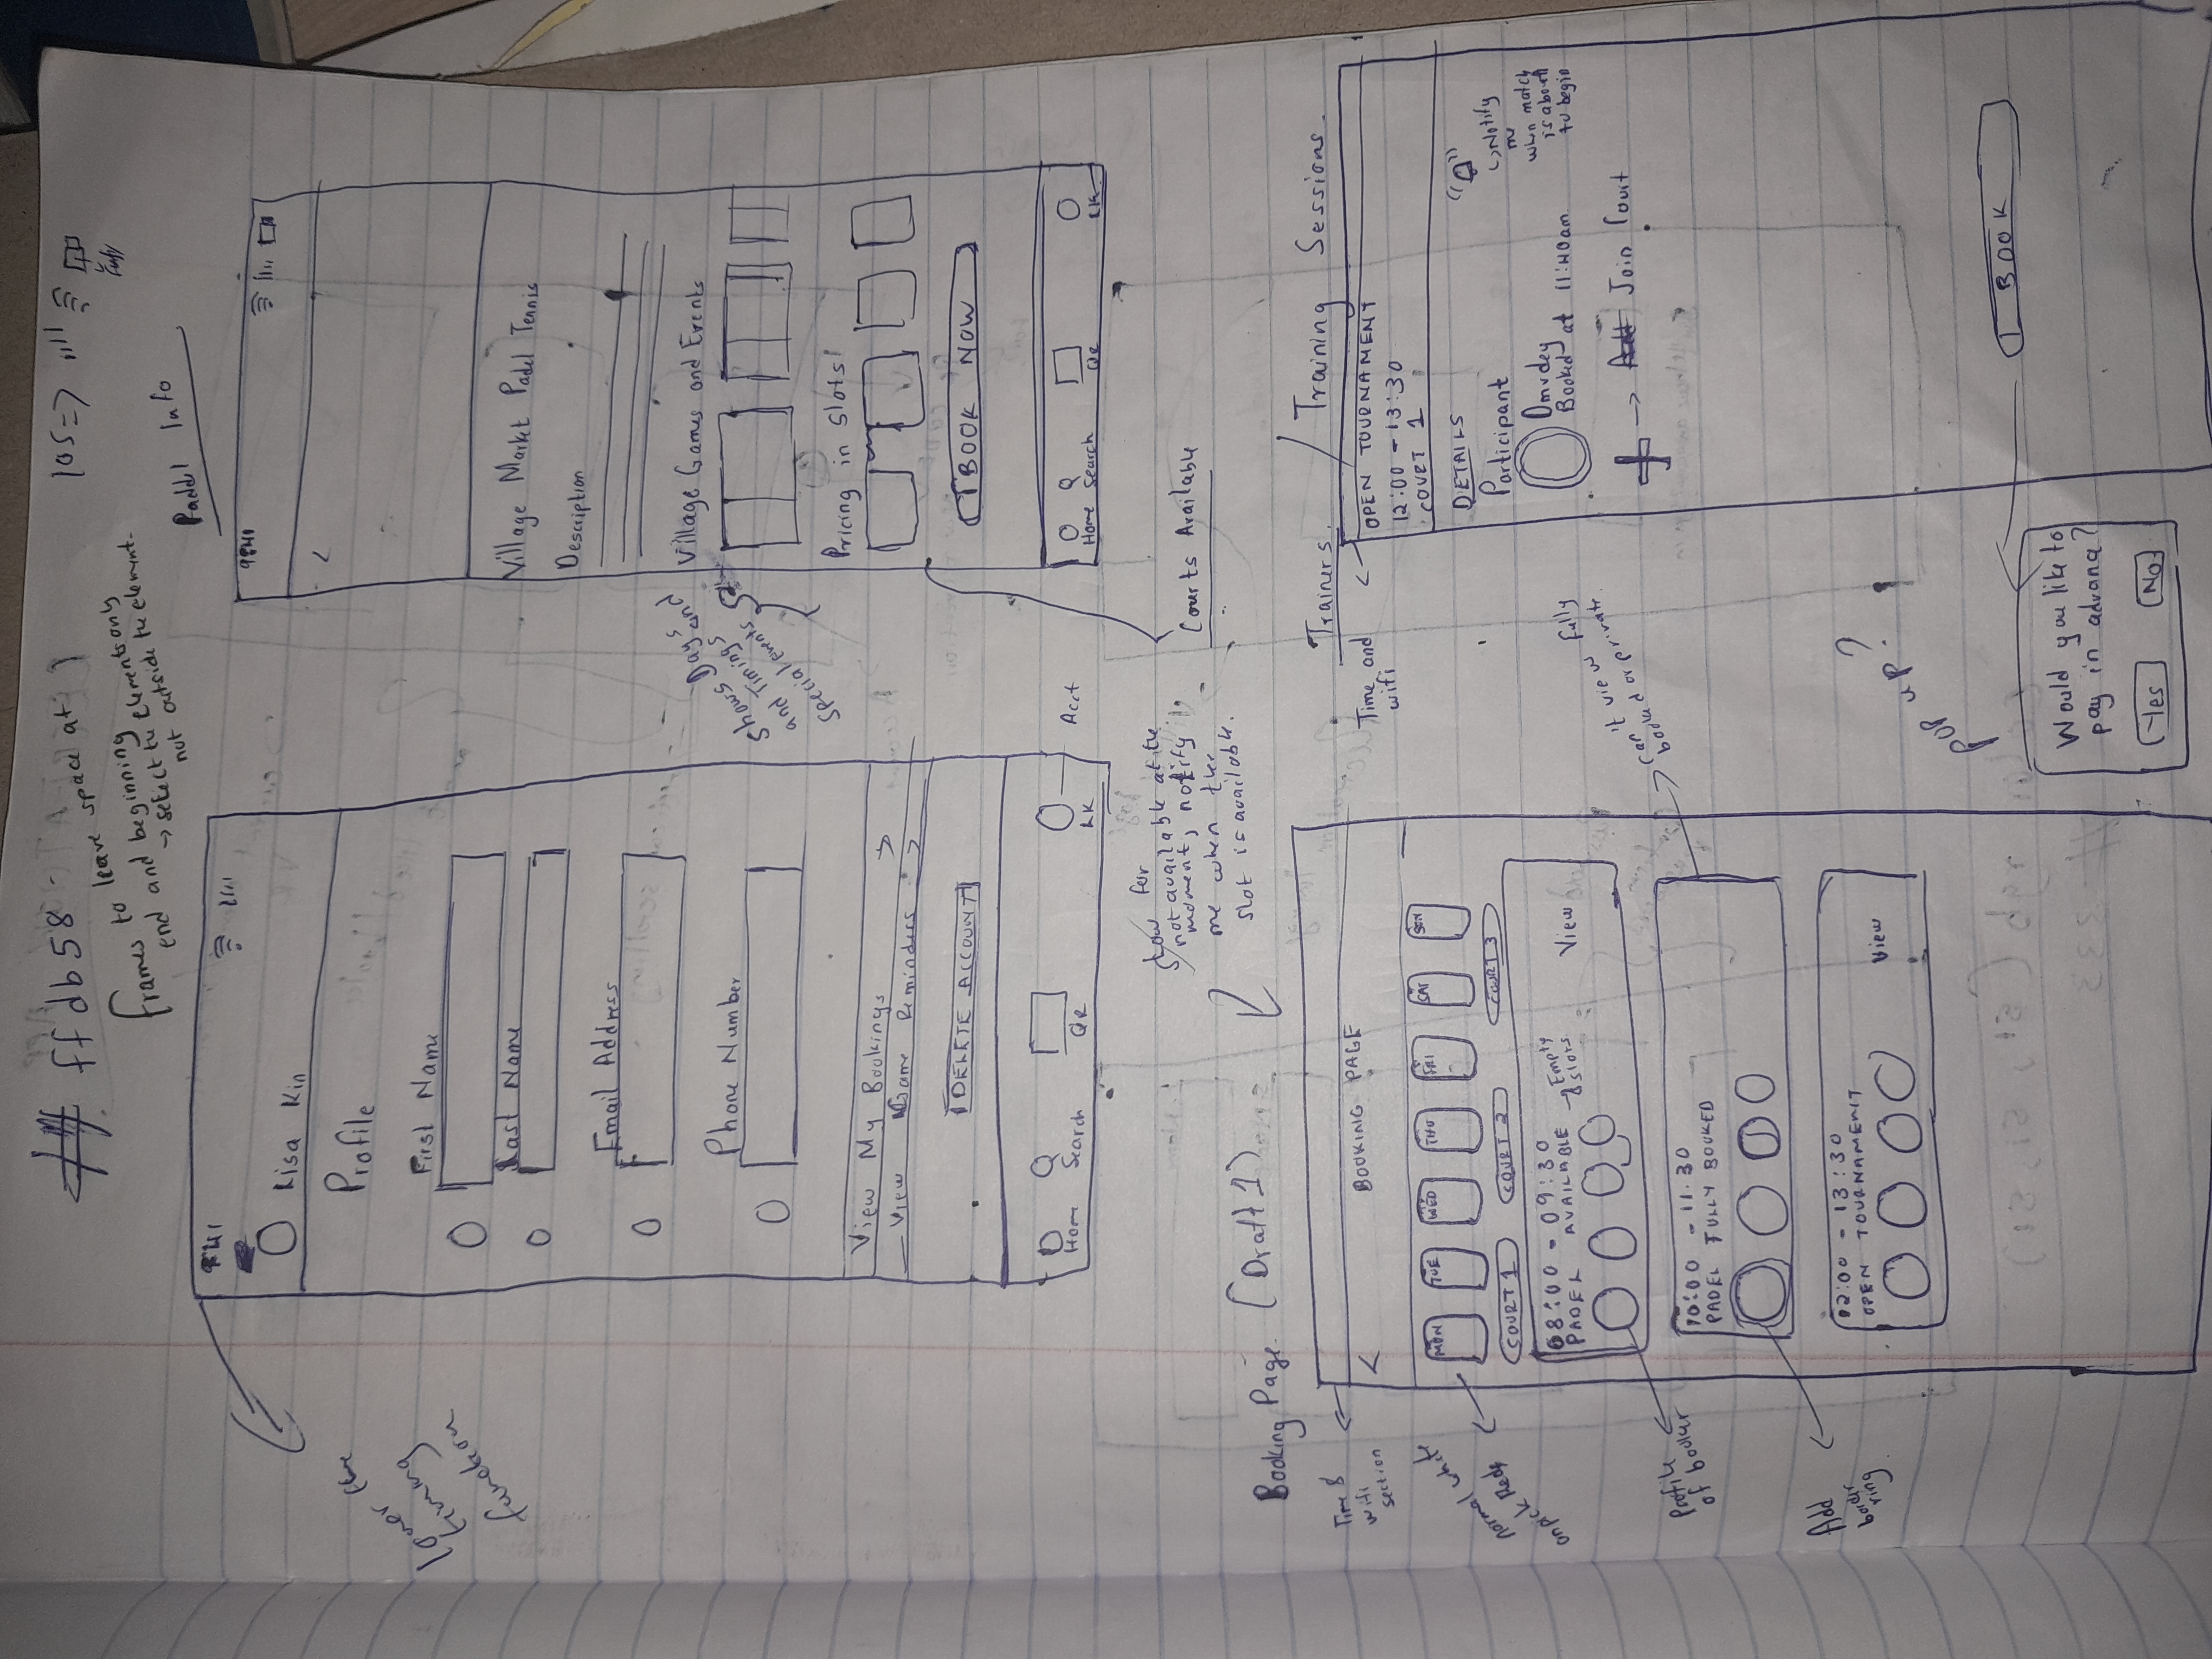 # ffdb58
frames to leave space at
end and beginning
→ select the elements only
not outside the element.
IOS =>
Lower the
timing
function
9:41
Lisa Kin
Profile
First Name
Last Name
Email Address
Phone Number
View My Bookings >
View Game Reminders >
DELETE ACCOUNT
Home Search QR LK
Acct
Paddl Info
9:41
<
Village Market Padel Tennis
Description
Village Games and Events
Shows Days and
and Timings
special Events
Pricing in slots!
BOOK NOW
Home Search QR LK
Courts Available
not available at the
moment, notify
me when the
slot is available.
Booking Page. (Draft 1)
Time &
wifi
section
< BOOKING PAGE
MON TUE WED THU FRI SAT SUN
normal white
onpick Reds
COURT 1 COURT 2 COURT 3
08:00 - 09:30
PADEL AVAILABLE → Empty
slots
View
Profile
of booker
10:00 - 11.30
PADEL FULLY BOOKED
can't view fully
booked or private.
Add
border
ring
02:00 - 13:30
OPEN TOURNAMENT
View
Trainers. / Training Sessions.
Time and
wifi
OPEN TOURNAMENT
12:00 - 13:30
COURT 1
DETAILS
Participant
Omvdey
Booked at 11:40am
Notify
me
when match
is about
to begin
+ → Join Court
POP UP?
BOOK
Would you like to
pay in advance?
Yes No